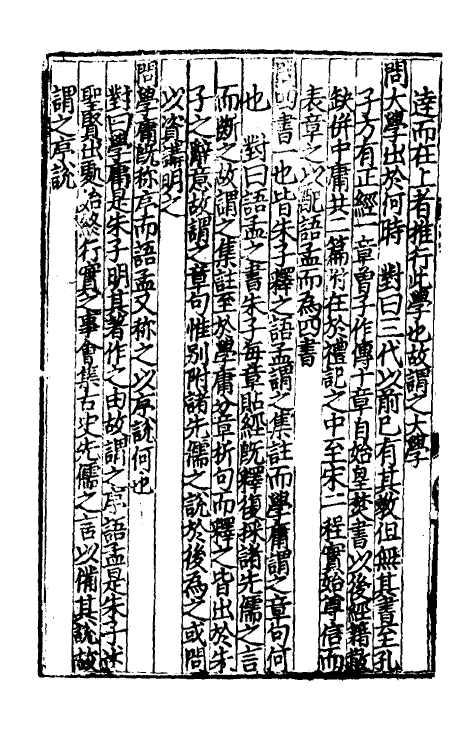 達而在上者推行此學也故謂之大學
問大學出於何時　對曰三代以前已有其教但無其書至孔
子方有正經一章曾子作傳十章自始皇焚書以後經籍散
缺併中庸共二篇附在於禮記之中至宋二程實始尊信而
表章之以配語孟而為四書
問四書一也皆朱子釋之語孟謂之集註而學庸謂之章句何
也　對曰語孟之書朱子每章貼經既釋復採諸先儒之言
而斷之故謂之集註至於學庸分章析句而釋之皆出於朱
子之辭意故謂之章句惟別附諸先儒之說於後為之或問
以資講明之
問學庸既称序而語孟又称之以序說何也
對曰學庸是朱子明其著作之由故謂之序語孟是朱子述
聖賢出䖏始終行實之事會集古史先儒之言以備其說故
謂之序說